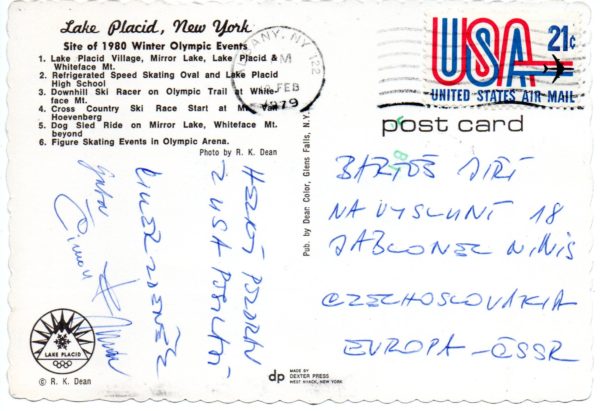 Lake Placid, New York
Site of 1980 Winter Olympic Events
1. Lake Placid Village, Mirror Lake, Lake Placid &
Whiteface Mt.
2. Refrigerated Speed Skating Oval and Lake Placid
High School
3. Downhill Ski Racer on Olympic Trail at White-
face Mt.
4. Cross Country Ski Race Start at Mt. Van
Hoevenberg
5. Dog Sled Ride on Mirror Lake, Whiteface Mt.
beyond
6. Figure Skating Events in Olympic Arena.
Photo by R. K. Dean
ALBANY, NY 122
FEB
1979
USA 21c
UNITED STATES AIR MAIL
post card
Pub. by Dean Color, Glens Falls, N.Y.
BARTOŠ JIŘÍ
NA VÝSLUNÍ 18
JABLONEC N/NIS
CZECHOSLOVAKIA
EUROPA - ČSSR
Z USA
LAKE PLACID
© R. K. Dean
dp MADE BY
DEXTER PRESS
WEST NYACK, NEW YORK